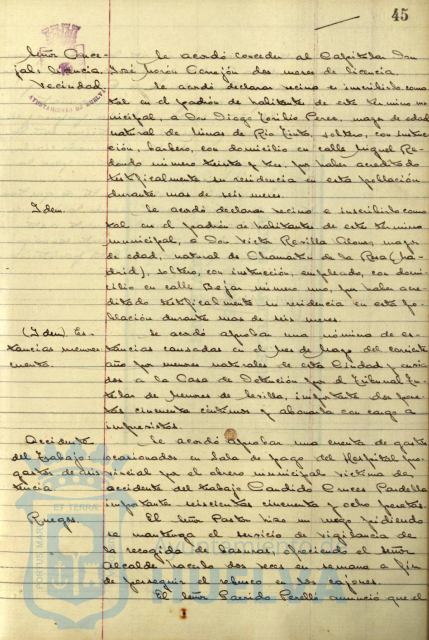 45
Señor Conce-
jal: licencia.
Vecindad
Se acordó conceder al Capitular Don
José Morón Carrejón dos meses de licencia.
Se acordó declarar vecino e inscribirlo como
tal en el padrón de habitantes de este término mu-
nicipal, a Don Diego Torilio Perea, mayor de edad
natural de Minas de Rio Tinto, soltero, con instruc-
ción, barbero, con domicilio en calle Miguel Re-
dondo número treinta y tres, por haber acreditado
testificalmente su residencia en esta población
durante mas de seis meses.
Idem.
Se acordó declarar vecino e inscribirlo como
tal en el padrón de habitantes de este término
municipal, a Don Victor Revilla Alonso, mayor
de edad, natural de Chamartin de la Rosa (Ma-
drid), soltero, con instrucción, empleado, con domi-
cilio en calle Bejar número uno, por haber acre-
ditado testificalmente su residencia en esta po-
blación durante mas de seis meses.
(Idem) Es-
tancias menores:
cuenta.
Se acordó aprobar una nómina de es-
tancias causadas en el mes de Mayo del corriente
año por menores naturales de esta Ciudad y envia-
dos a la Casa de Detención por el Tribunal Tu-
telar de Menores de Sevilla, importante dos pese-
tas cincuenta céntimos y abonarla con cargo a
imprevistos.
Accidente
del trabajo:
gastos de asis-
tencia
Se acordó aprobar una cuenta de gastos
ocasionados en Sala de pago del Hospital pro-
vincial por el obrero municipal víctima de
accidente del trabajo Candido Cruces Pardella
importante seiscientas cincuenta y ocho pesetas.
Ruegos.
El Señor Pastor hizo un ruego pidiendo
se mantenga el servicio de vigilancia de
la recogida de basuras, ofreciendo el Señor
Alcalde hacerlo dos veces en semana a fin
de perseguir el rebusco en los cajones.
El Señor Garrido Perelló anunció que el